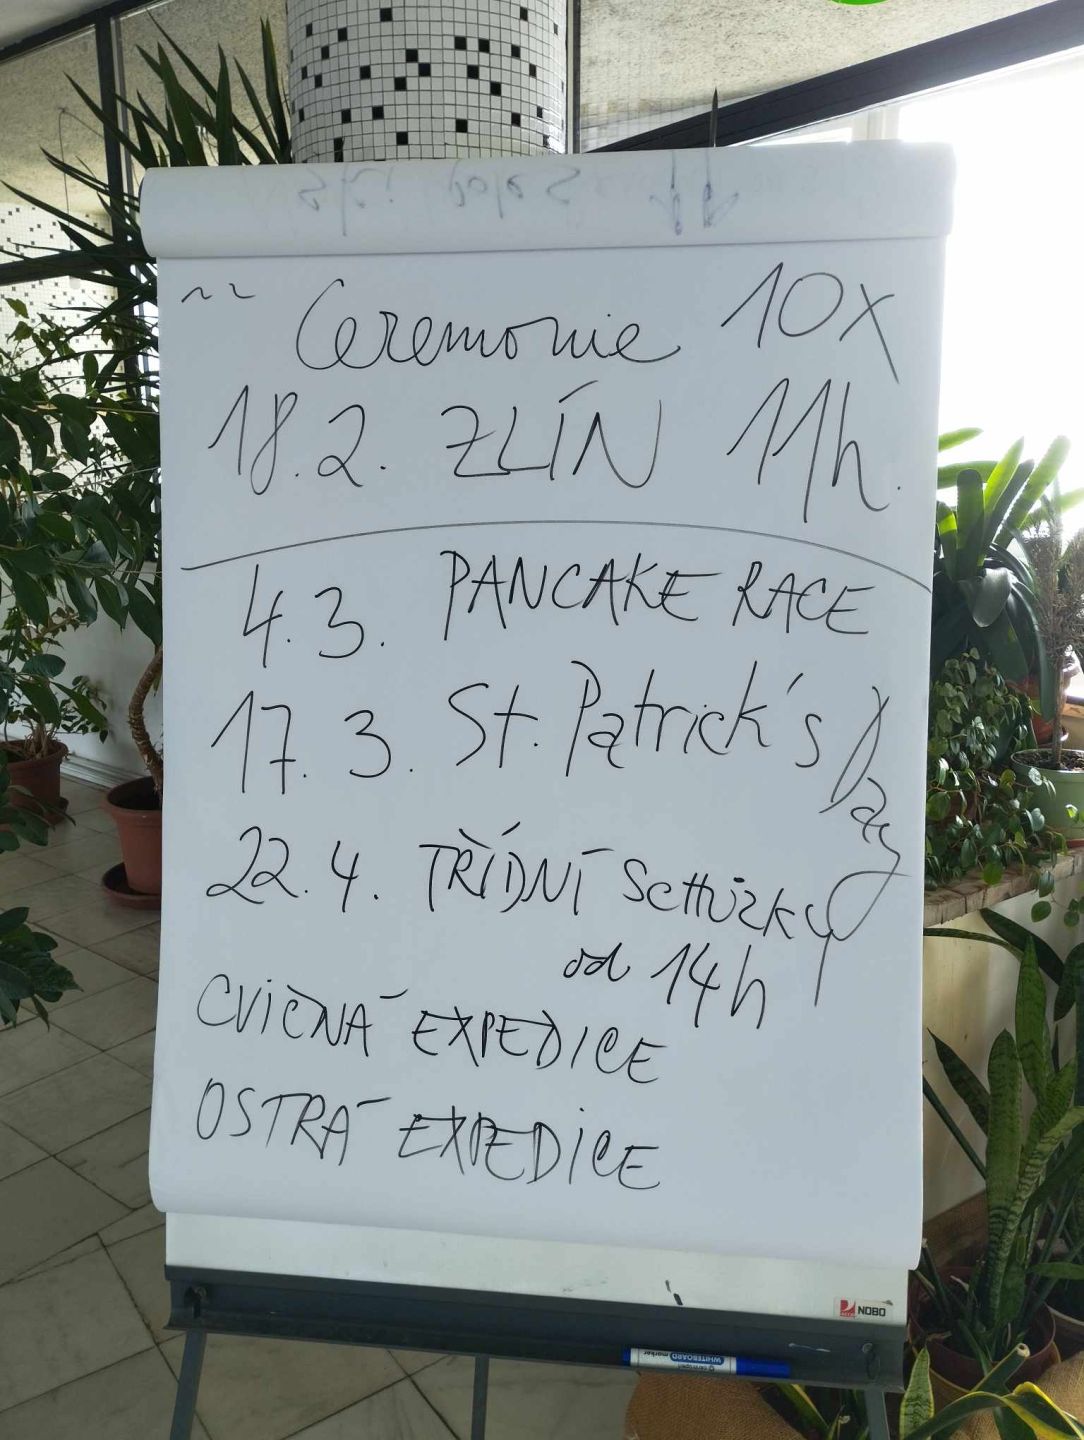 ~~ Ceremonie 10x
18.2. ZLÍN 11h.
4.3. PANCAKE RACE
17.3. St. Patrick's Day
22.4. TŘÍDNÍ schůzky
od 14h
CVIČNÁ EXPEDICE
OSTRÁ EXPEDICE
NOBO
WHITEBOARD
marker